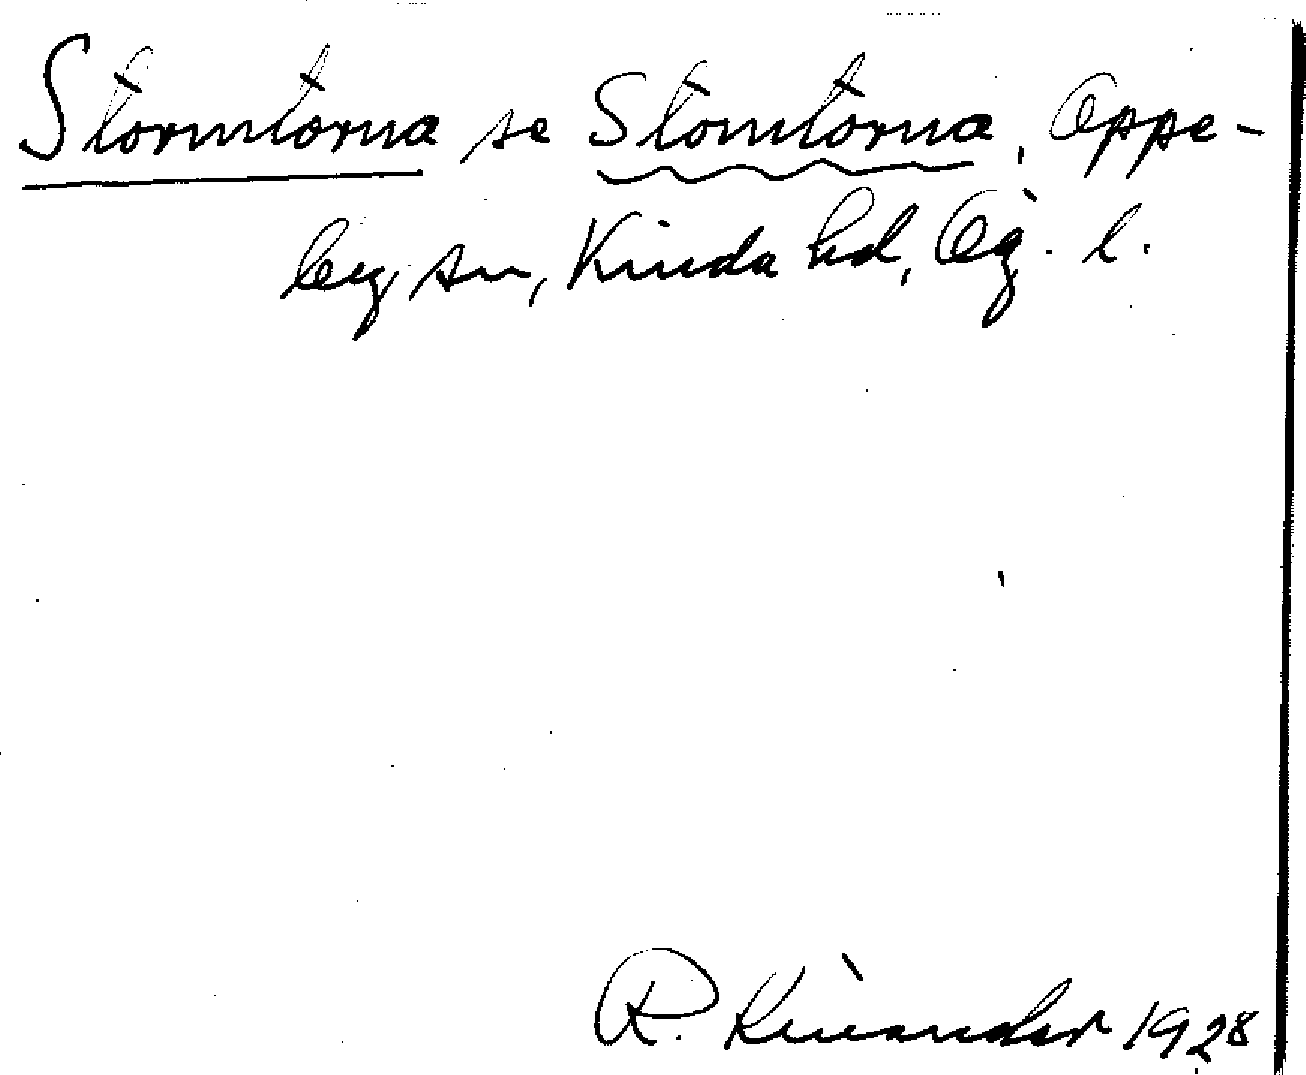 Stormtorna se Stomtorna, Oppe-
by sn, Kinda hd, Ög. l.
R. Kinander 1928